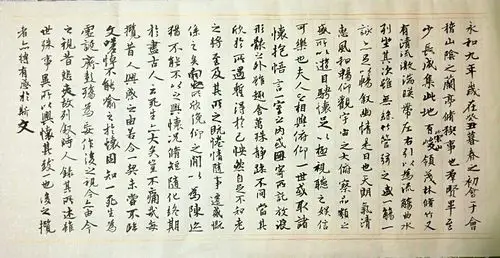 永和九年歲在癸丑暮春之初會于會
稽山陰之蘭亭脩稧事也羣賢畢至
少長咸集此地有崇山峻領茂林脩竹又
有清流激湍暎帶左右引以爲流觴曲水
列坐其次雖無絲竹管弦之盛一觴一
詠亦足以暢敘幽情是日也天朗氣清
惠風和暢仰觀宇宙之大俯察品類之
盛所以遊目騁懷足以極視聽之娛信
可樂也夫人之相與俯仰一世或取諸
懷抱悟言一室之內或因寄所託放浪
形骸之外雖趣舍萬殊靜躁不同當其
欣於所遇暫得於己怏然自足不知老
之將至及其所之既惓情隨事遷感慨
係之矣向之所欣俛仰之閒以爲陳迹
猶不能不以之興懷況脩短隨化終期
於盡古人云死生亦大矣豈不痛哉每
攬昔人興感之由若合一契未嘗不臨
文嗟悼不能喻之於懷固知一死生爲
虛誕齊彭殤爲妄作後之視今亦由今
之視昔悲夫故列敘時人錄其所述雖
世殊事異所以興懷其致一也後之攬
者亦將有感於斯文